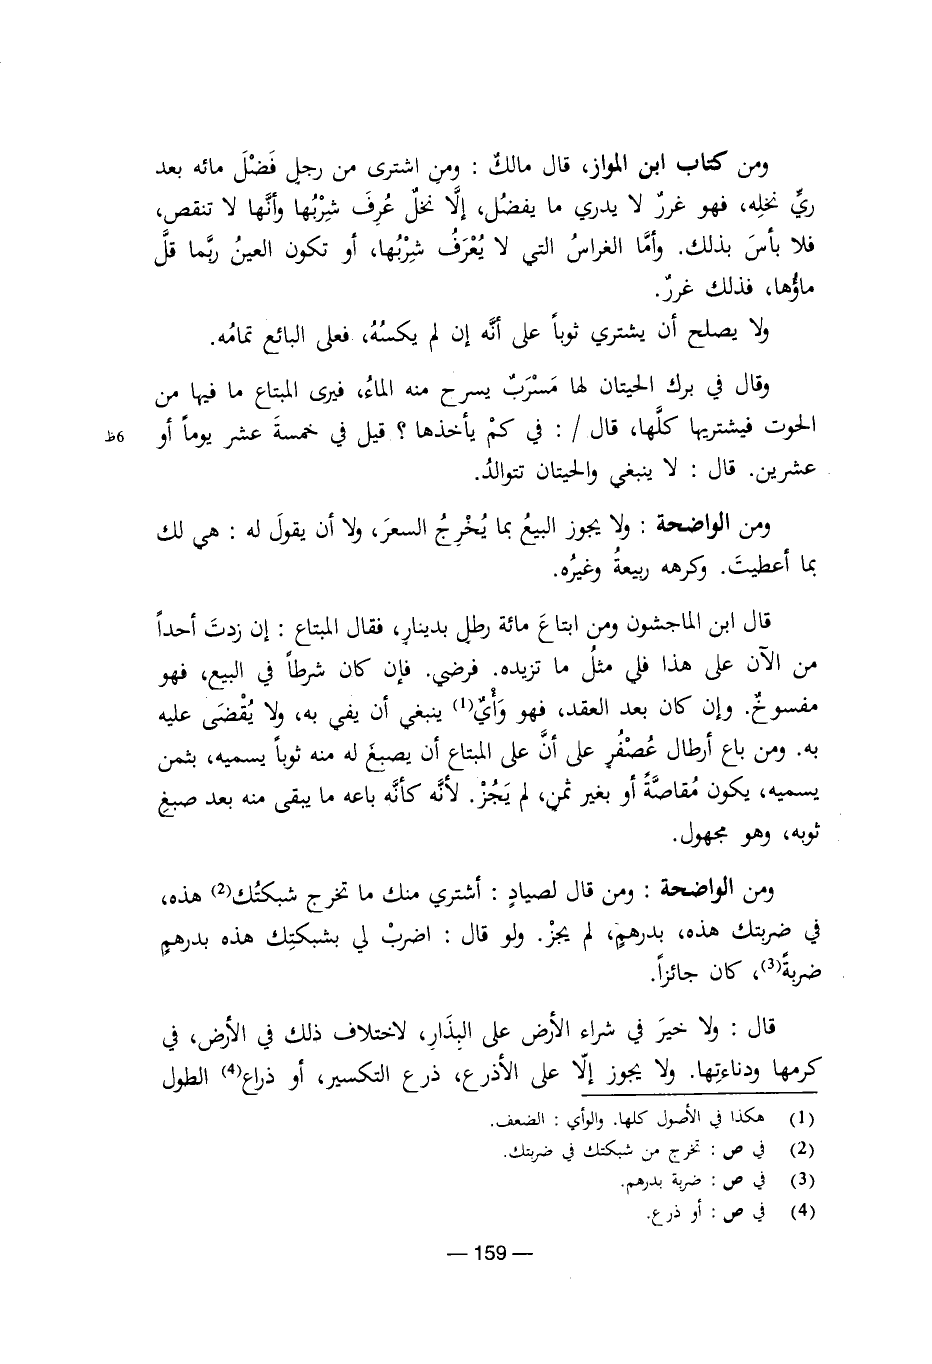 ومن كتاب ابن المواز، قال مالكٌ : ومنِ اشترى من رجلٍ فَضْلَ مائه بعد
ريِّ نخلِه، فهو غررٌ لا يدري ما يفضُل، إلَّا نخلٌ عُرِفَ شِرْبُها وأنَّها لا تنقص،
فلا بأسَ بذلك. وأمَّا الغراسُ التي لا يُعْرَفُ شِرْبُها، أو تكون العينُ ربَّما قلَّ
ماؤُها، فذلك غررٌ.
ولا يصلح أن يشتري ثوباً على أنَّه إن لم يكسُهُ، فعلى البائع تمامُه.
وقال في برك الحيتان لها مَسْرَبٌ يسرح منه الماءُ، فيرى المبتاع ما فيها من
الحوت فيشتريها كلَّها، قال / : في كمْ يأخذها ؟ قيل في خمسةَ عشر يوماً أو
6ظ
عشرين. قال : لا ينبغي والحيتان تتوالدُ.
ومن الواضحة : ولا يجوز البيعُ بما يُخْرِجُ السعرَ، ولا أن يقولَ له : هي لك
بما أعطيتَ. وكرهه ربيعةُ وغيرُه.
قال ابن الماجشون ومن ابتاعَ مائة رطلٍ بدينارٍ، فقال المبتاع : إن زدتَ أحداً
من الآن على هذا فلي مثلُ ما تزيده. فرضي. فإن كان شرطاً في البيع، فهو
مفسوخٌ. وإن كان بعد العقد، فهو وَأْيٌ(1) ينبغي أن يفي به، ولا يُقْضَى عليه
به. ومن باع أرطال عُصْفُرٍ على أنَّ على المبتاع أن يصبغَ له منه ثوباً يسميه، بثمن
يسميه، يكون مُقاصَّةً أو بغير ثمنٍ، لم يَجُزْ. لأنَّه كأنَّه باعه ما يبقى منه بعد صبغِ
ثوبه، وهو مجهول.
ومن الواضحة : ومن قال لصيادٍ : أشتري منك ما تخرج شبكتُك(2) هذه،
في ضربتك هذه، بدرهمٍ، لم يجزْ. ولو قال : اضربْ لي بشبكتِك هذه بدرهمٍ
ضربةً(3)، كان جائزاً.
قال : ولا خيرَ في شراء الأرض على البِذَارِ، لاختلاف ذلك في الأرض، في
كرمها ودناءتِها. ولا يجوز إلّا على الأذرع، ذرع التكسير، أو ذراع(4) الطول
(1) هكذا في الأصول كلها. والوأي : الضعف.
(2) في ص : تخرج من شبكتك في ضربتك.
(3) في ص : ضربة بدرهم.
(4) في ص : أو ذرع.
— 159 —